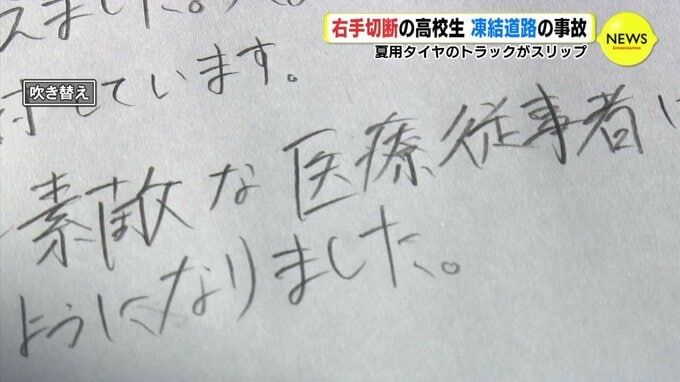 右手切断の高校生 凍結道路の事故
夏用タイヤのトラックがスリップ
NEWS
吹き替え
えました。
しています。
素敵な医療従事者に
ようになりました。